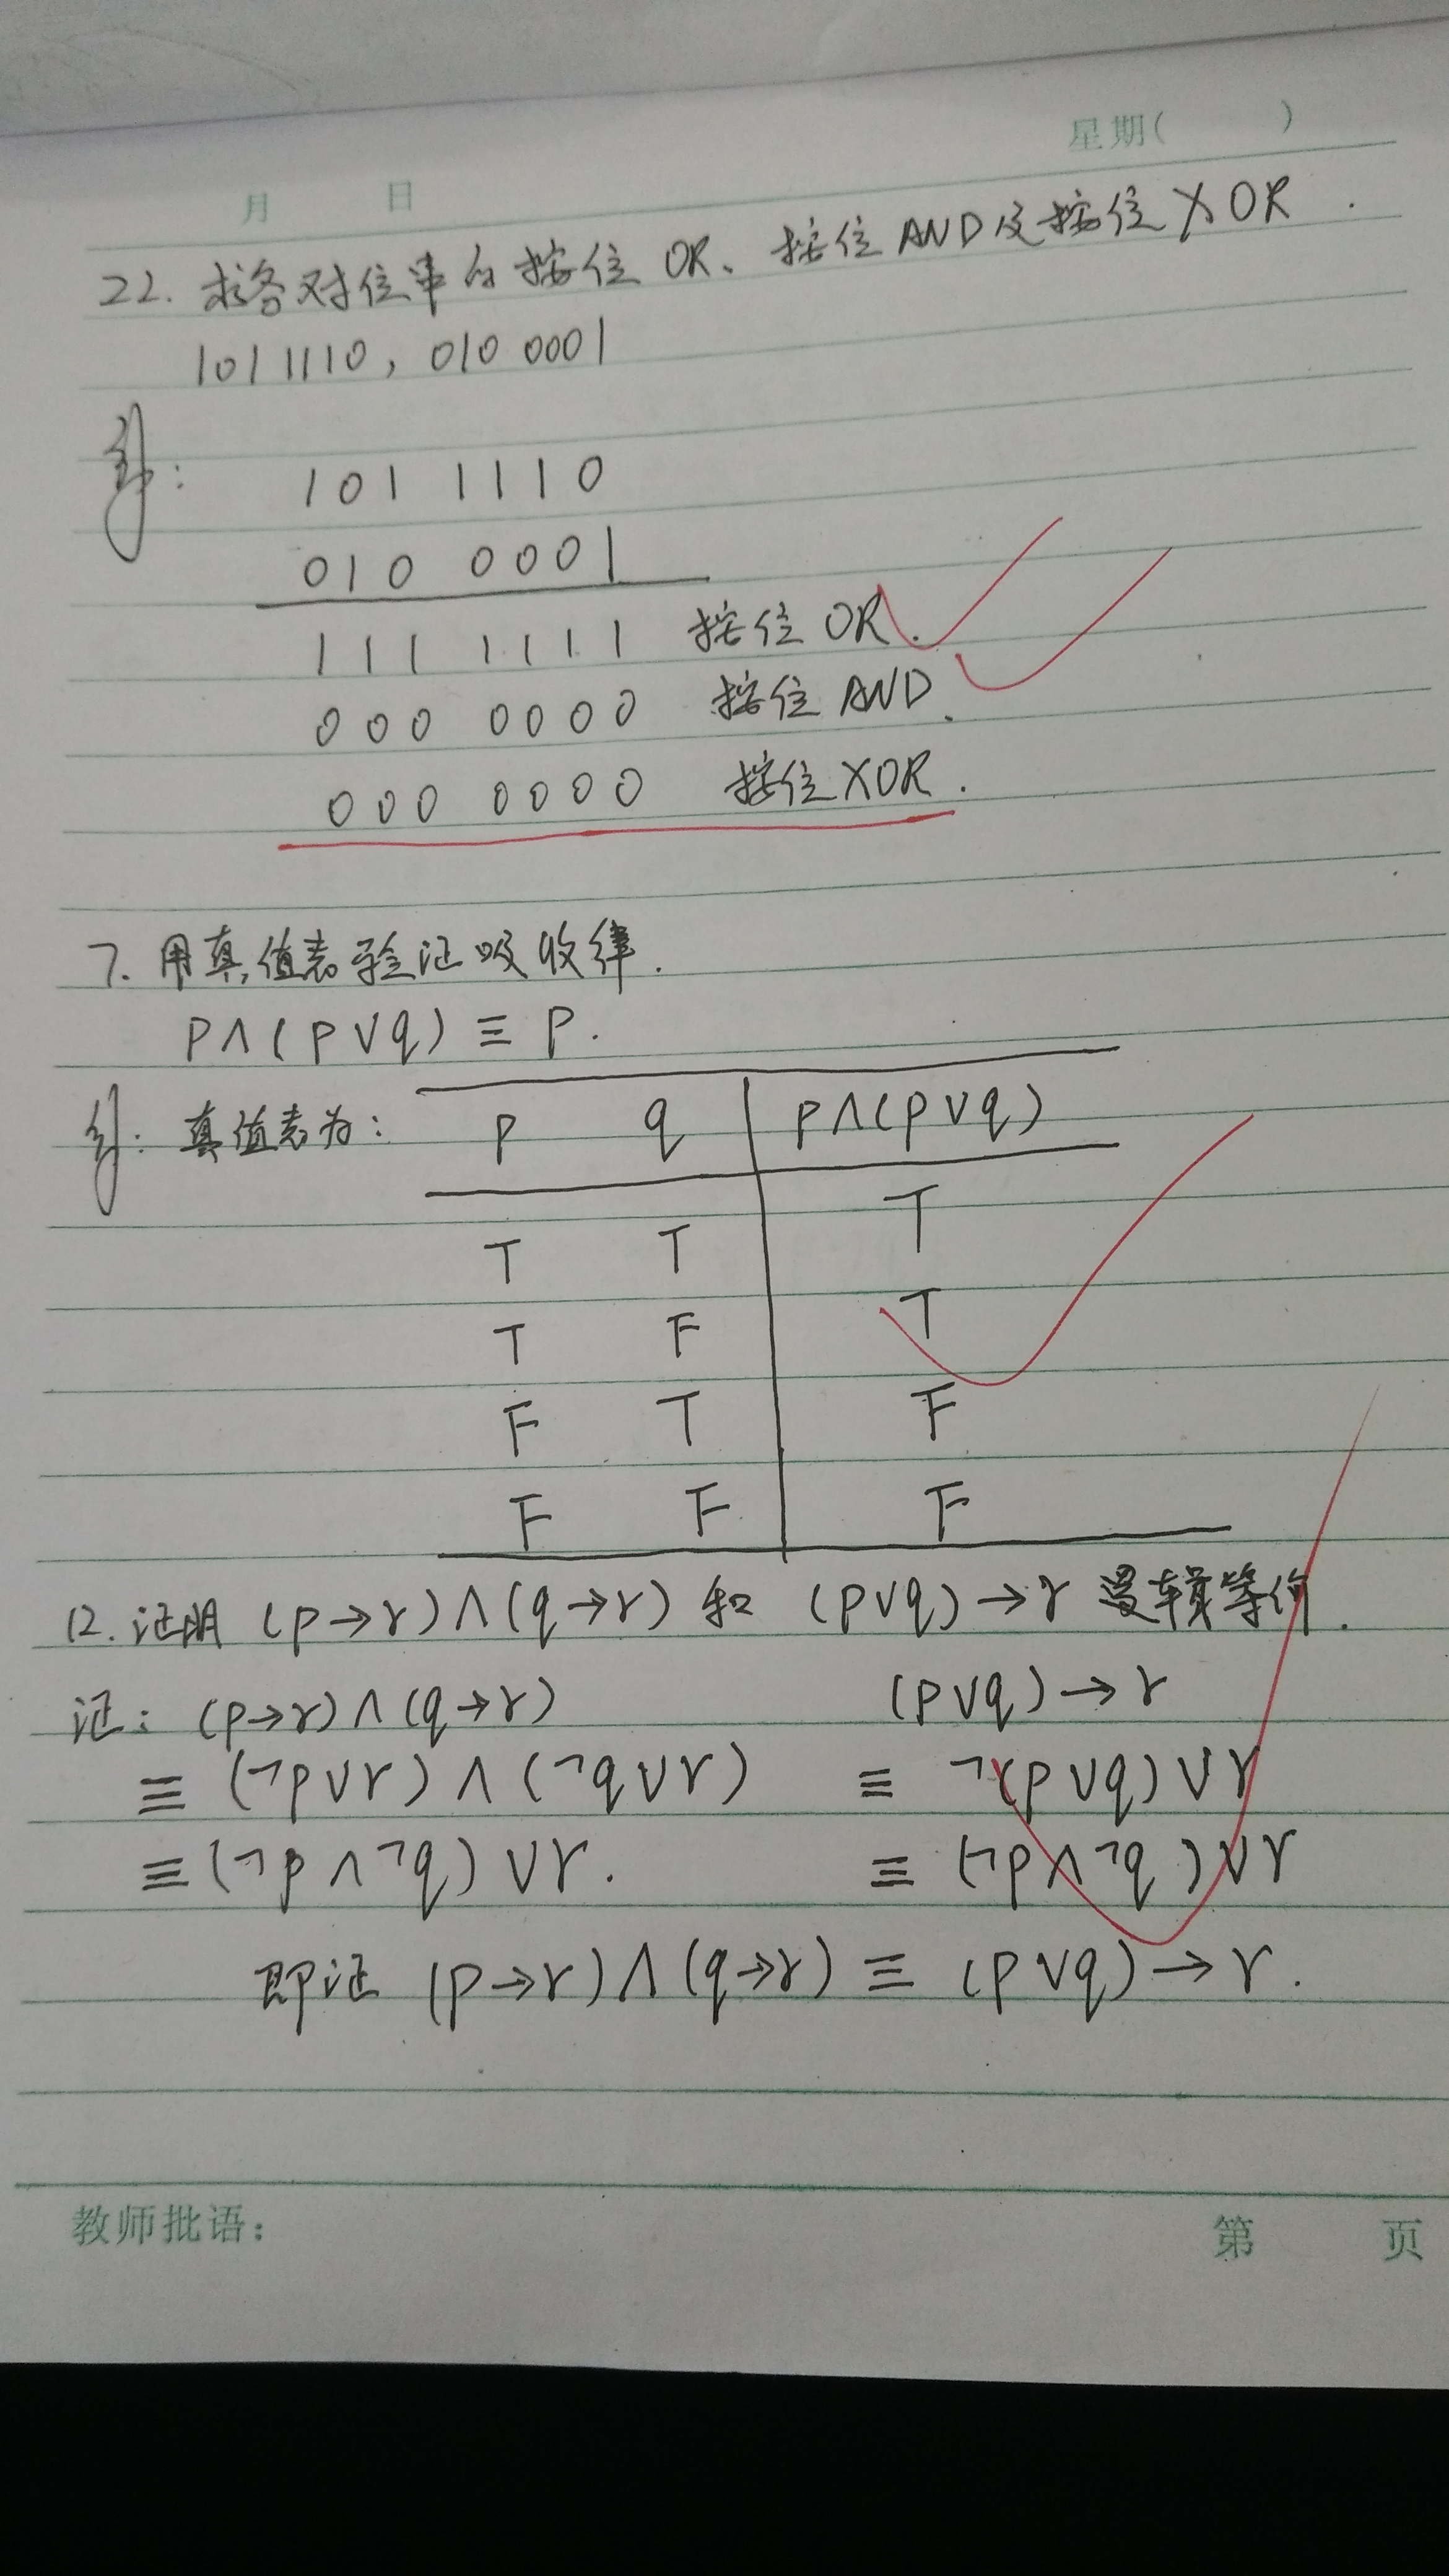 星期( )
月 日
22. 求各对位串的按位 OR、按位 AND 及按位 XOR.
101 1110, 010 0001
解: 101 1110
010 0001
111 1111 按位 OR.
000 0000 按位 AND.
000 0000 按位 XOR.
7. 用真值表验证吸收律.
P∧(P∨q) ≡ P.
解: 真值表为: p q p∧(p∨q)
T T T
T F T
F T F
F F F
12. 证明 (p→r)∧(q→r) 和 (p∨q)→r 逻辑等价.
证: (p→r)∧(q→r) (p∨q)→r
≡ (¬p∨r)∧(¬q∨r) ≡ ¬(p∨q)∨r
≡ (¬p∧¬q)∨r. ≡ (¬p∧¬q)∨r
即证 (p→r)∧(q→r) ≡ (p∨q)→r.
教师批语: 第 页